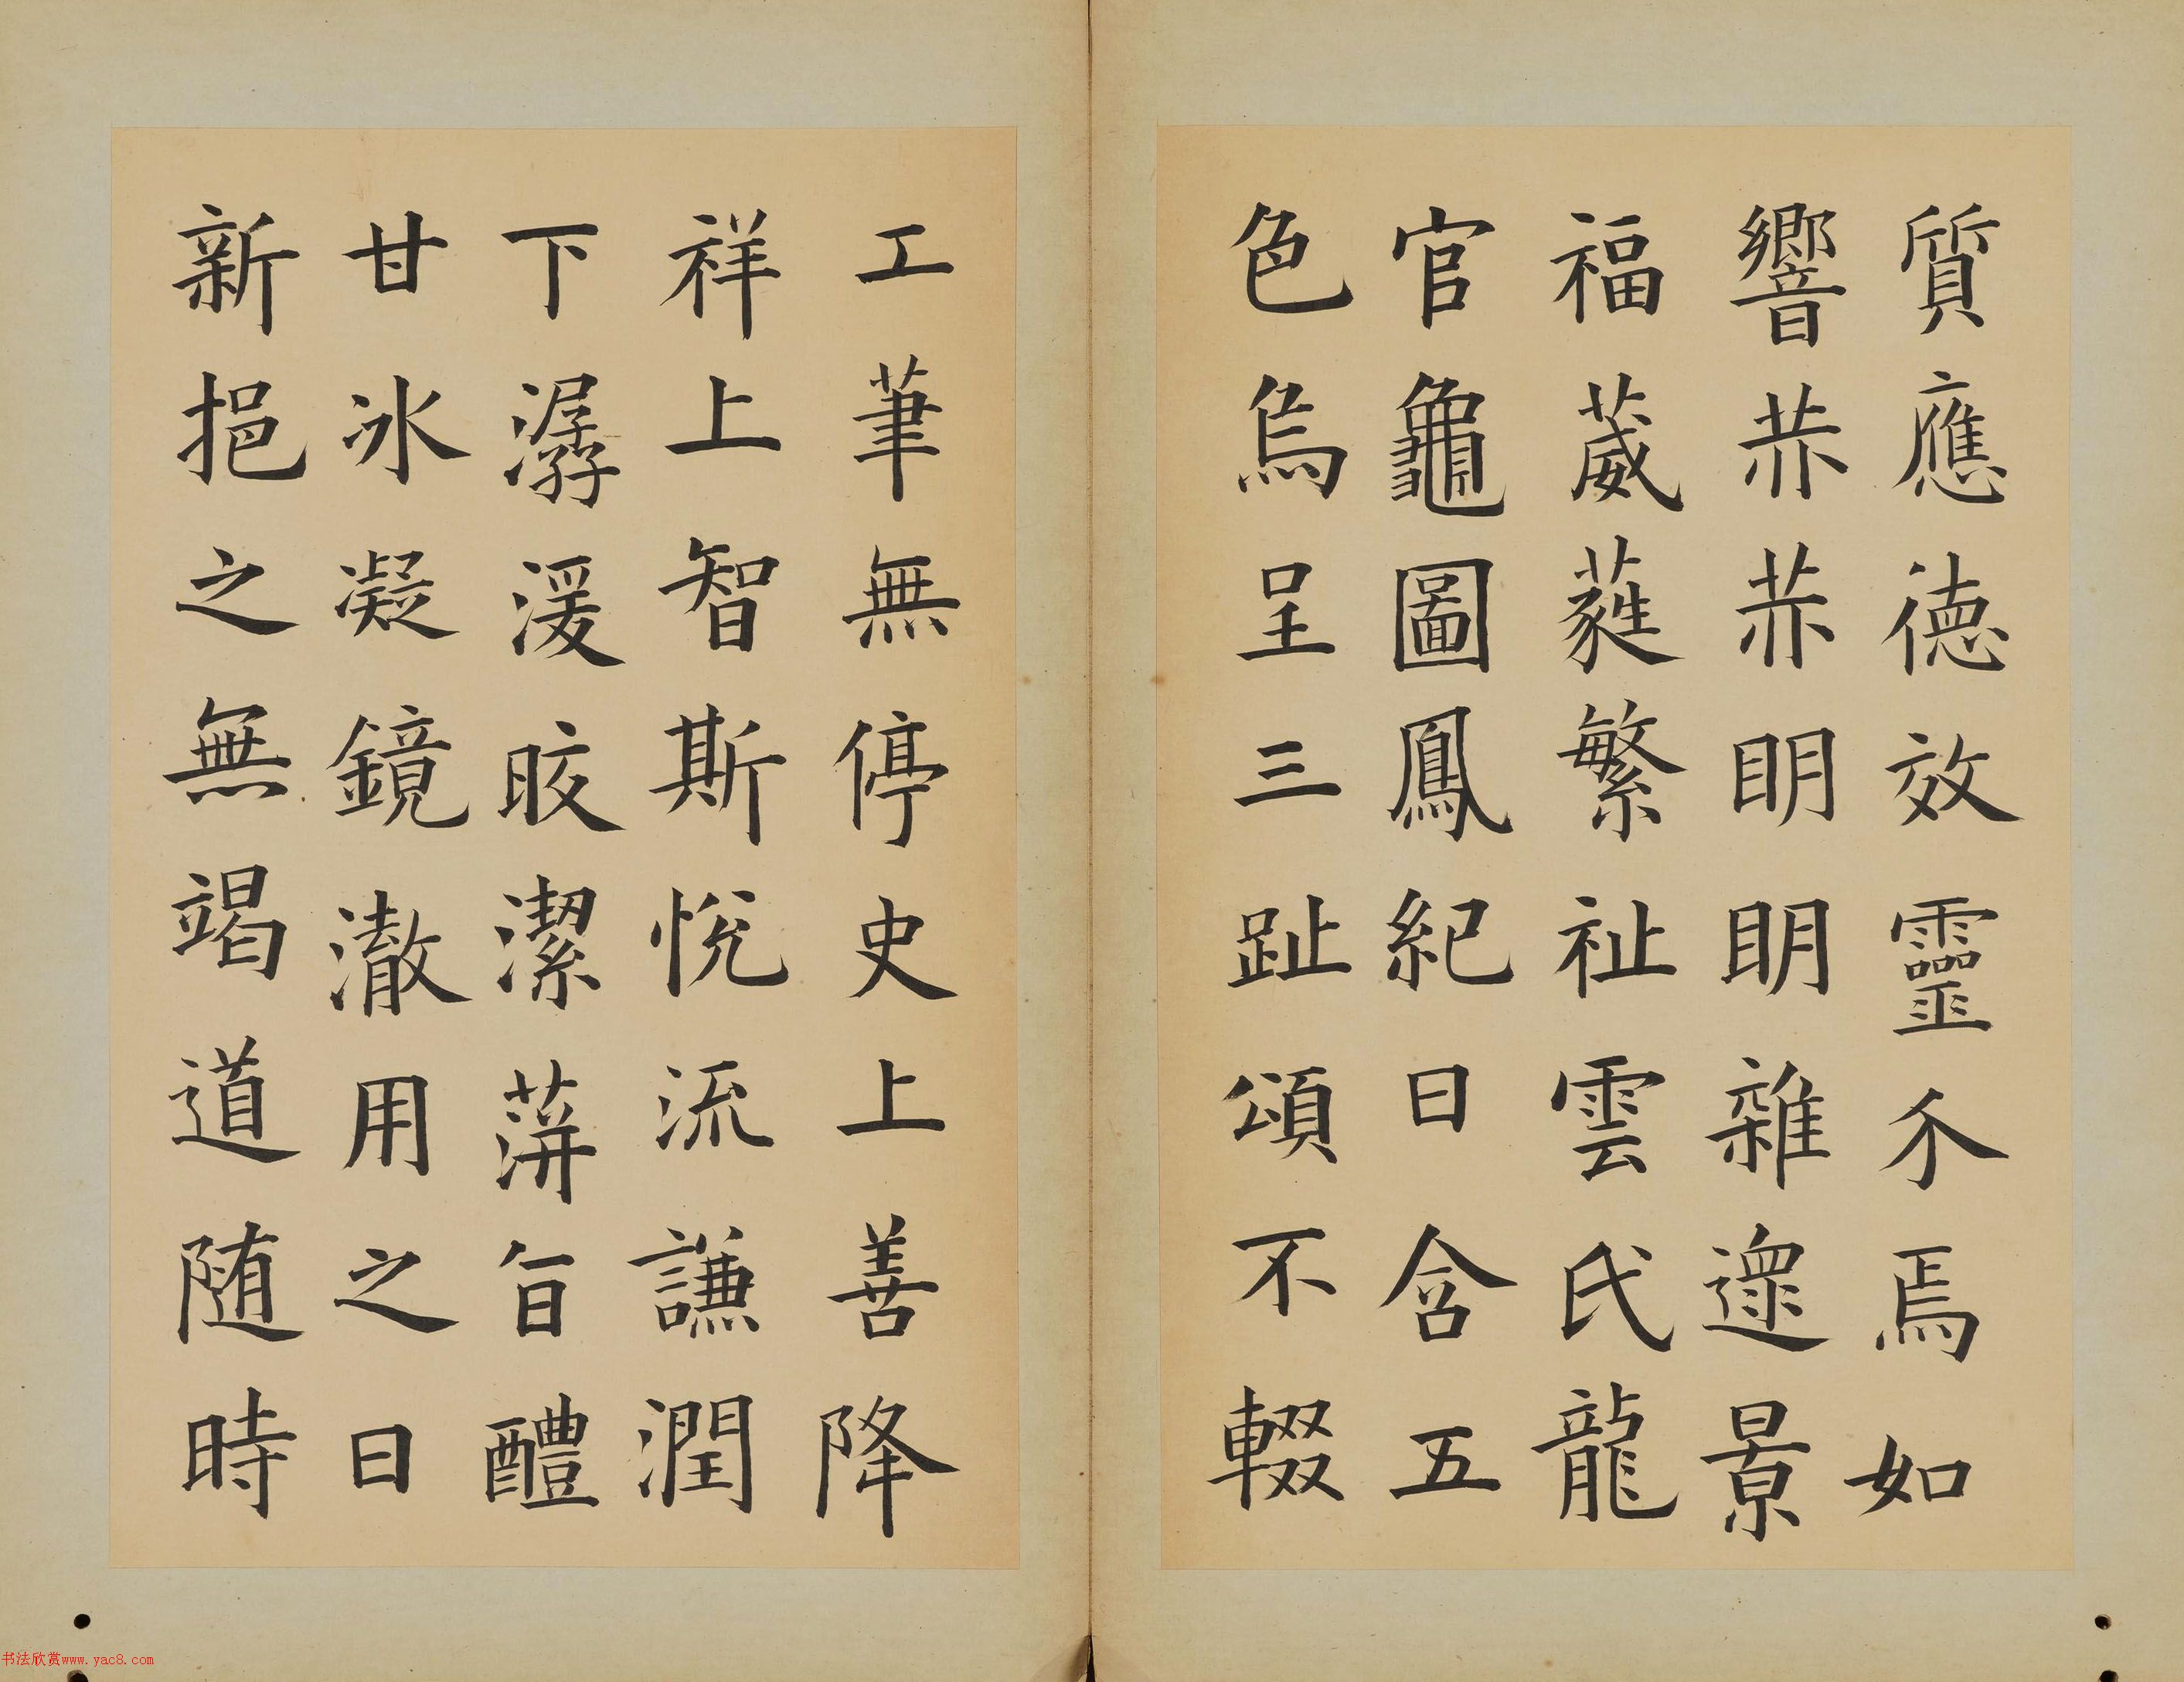 質應德效靈介焉如
響赫赫明明雜遝景
福葳蕤繁祉雲氏龍
官龜圖鳳紀日含五
色烏呈三趾頌不輟
工筆無停史上善降
祥上智斯悅流謙潤
下潺湲皎潔蓱旨醴
甘冰凝鏡澈用之日
新挹之無竭道随時
书法欣赏www.yac8.com